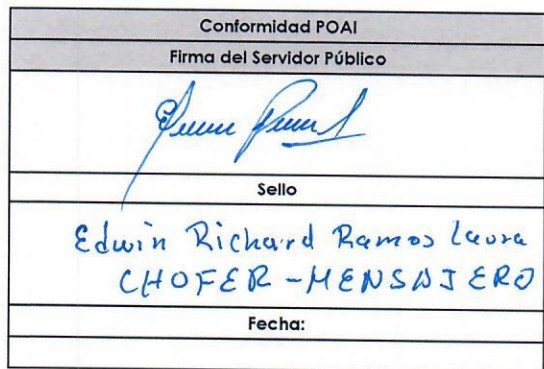 Conformidad POAI
Firma del Servidor Público
Sello
Edwin Richard Ramos Laura
CHOFER - MENSAJERO
Fecha: